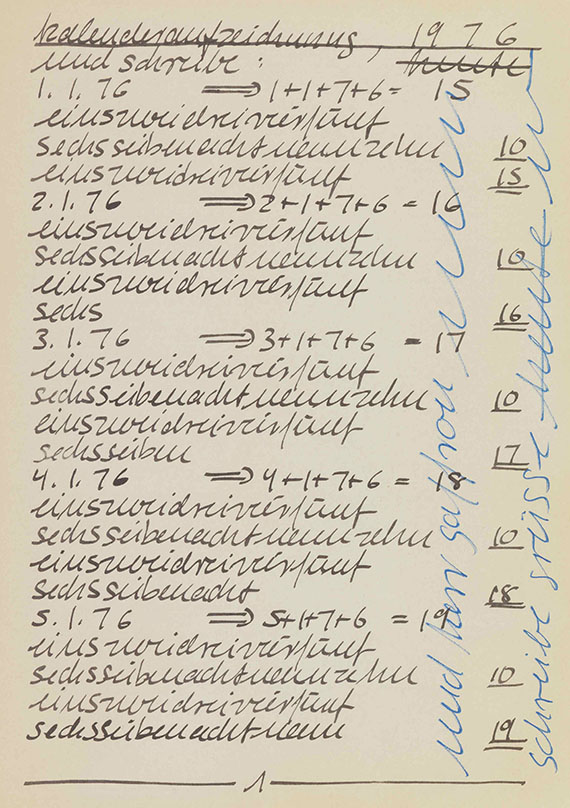 kalenderaufzeichnung, 1976
und schreibe: heute
1.1.76 ⟹ 1+1+7+6= 15
einszweidreivierfünf
sechssiebenachtneunzehn 10
einszweidreivierfünf 15
2.1.76 ⟹ 2+1+7+6 = 16
einszweidreivierfünf
sechssiebenachtneunzehn 10
einszweidreivierfünf
sechs 16
3.1.76 ⟹ 3+1+7+6 = 17
einszweidreivierfünf
sechssiebenachtneunzehn 10
einszweidreivierfünf
sechssieben 17
4.1.76 ⟹ 4+1+7+6 = 18
einszweidreivierfünf
sechssiebenachtneunzehn 10
einszweidreivierfünf
sechssiebenacht 18
5.1.76 ⟹ 5+1+7+6 = 19
einszweidreivierfünf
sechssiebenachtneunzehn 10
einszweidreivierfünf
sechssiebenachtneun 19
1
und herr gaffron
schreibe grüsse heute